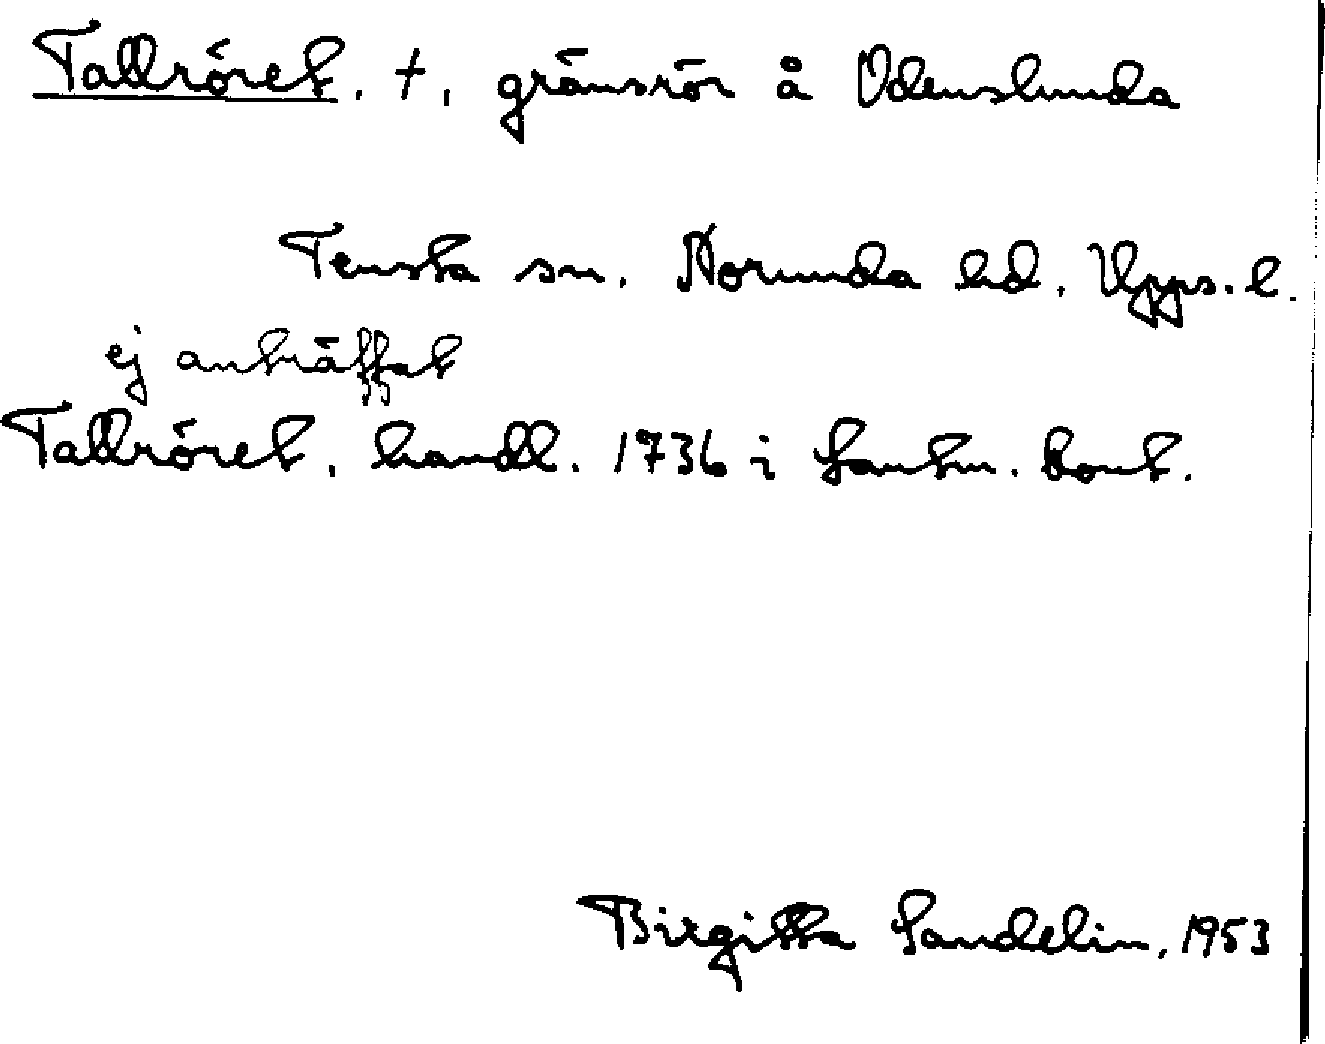 Tallröret. †, gränsrör å Odenslunda
Tensta sn. Norunda hd. Upps. l.
ej anträffat
Tallröret, handl. 1736 i Lantm. kont.
Birgitta Sandelin, 1953